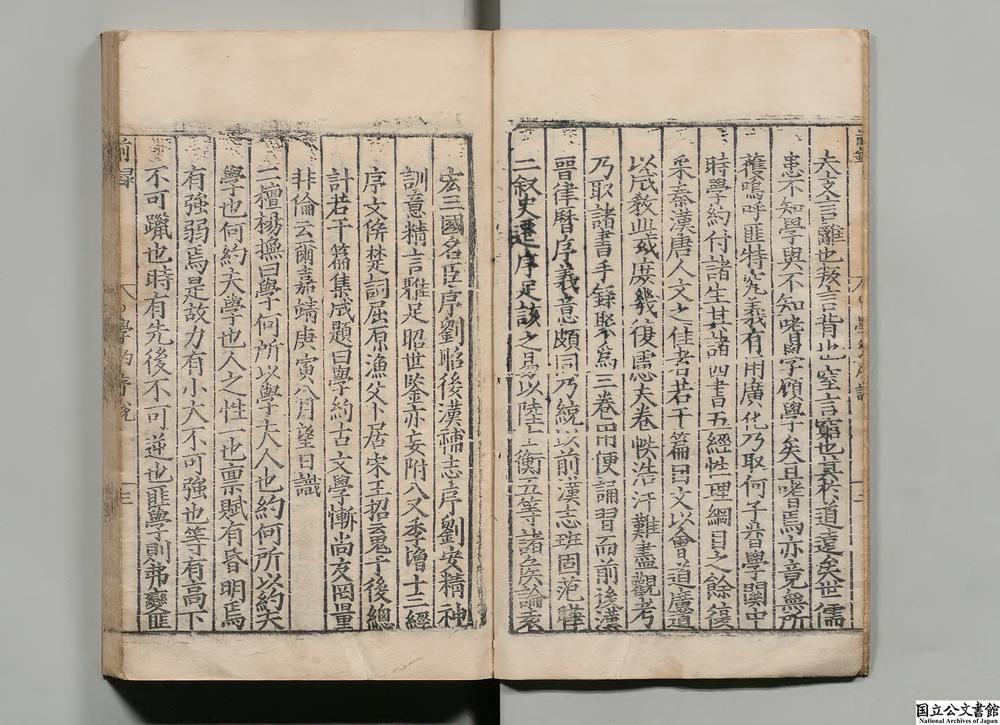 夫支言離也
患不知學與不知嗜習字顧學矣且嗜焉亦竟無所
獲嗚呼匪特究義有用廣化乃取何子音學
時學約付諸生其諸四書五經性理綱目之餘復
采秦漢唐人文之佳者若干篇曰文以會道麗道
以成敎
乃取諸書手錄聚爲三卷用便誦習而前後漢
晉律曆序義意頗同乃統以前漢志班固范曄
二叙史遷序足該之易以陸士衡五等諸侯論袁
宏三國名臣序劉昭後漢補志序劉安精神
訓意精言雅足昭世鑒亦妄附八又季增十三經
序文倂楚詞屈原漁父卜居宋玉招䰟予後總
計若干篇集成題曰學約古文學慚尚友罔量
非倫云爾嘉靖庚寅八月望日識
二檀楊撫曰學何所以學夫人也約何所以約夫
學也何約夫學也人之性一也禀賦有昏明焉
有强弱焉是故力有小大不可强也等有高下
不可躐也時有先後不可逆也匪學則弗變匪
國立公文書館
National Archives of Japan